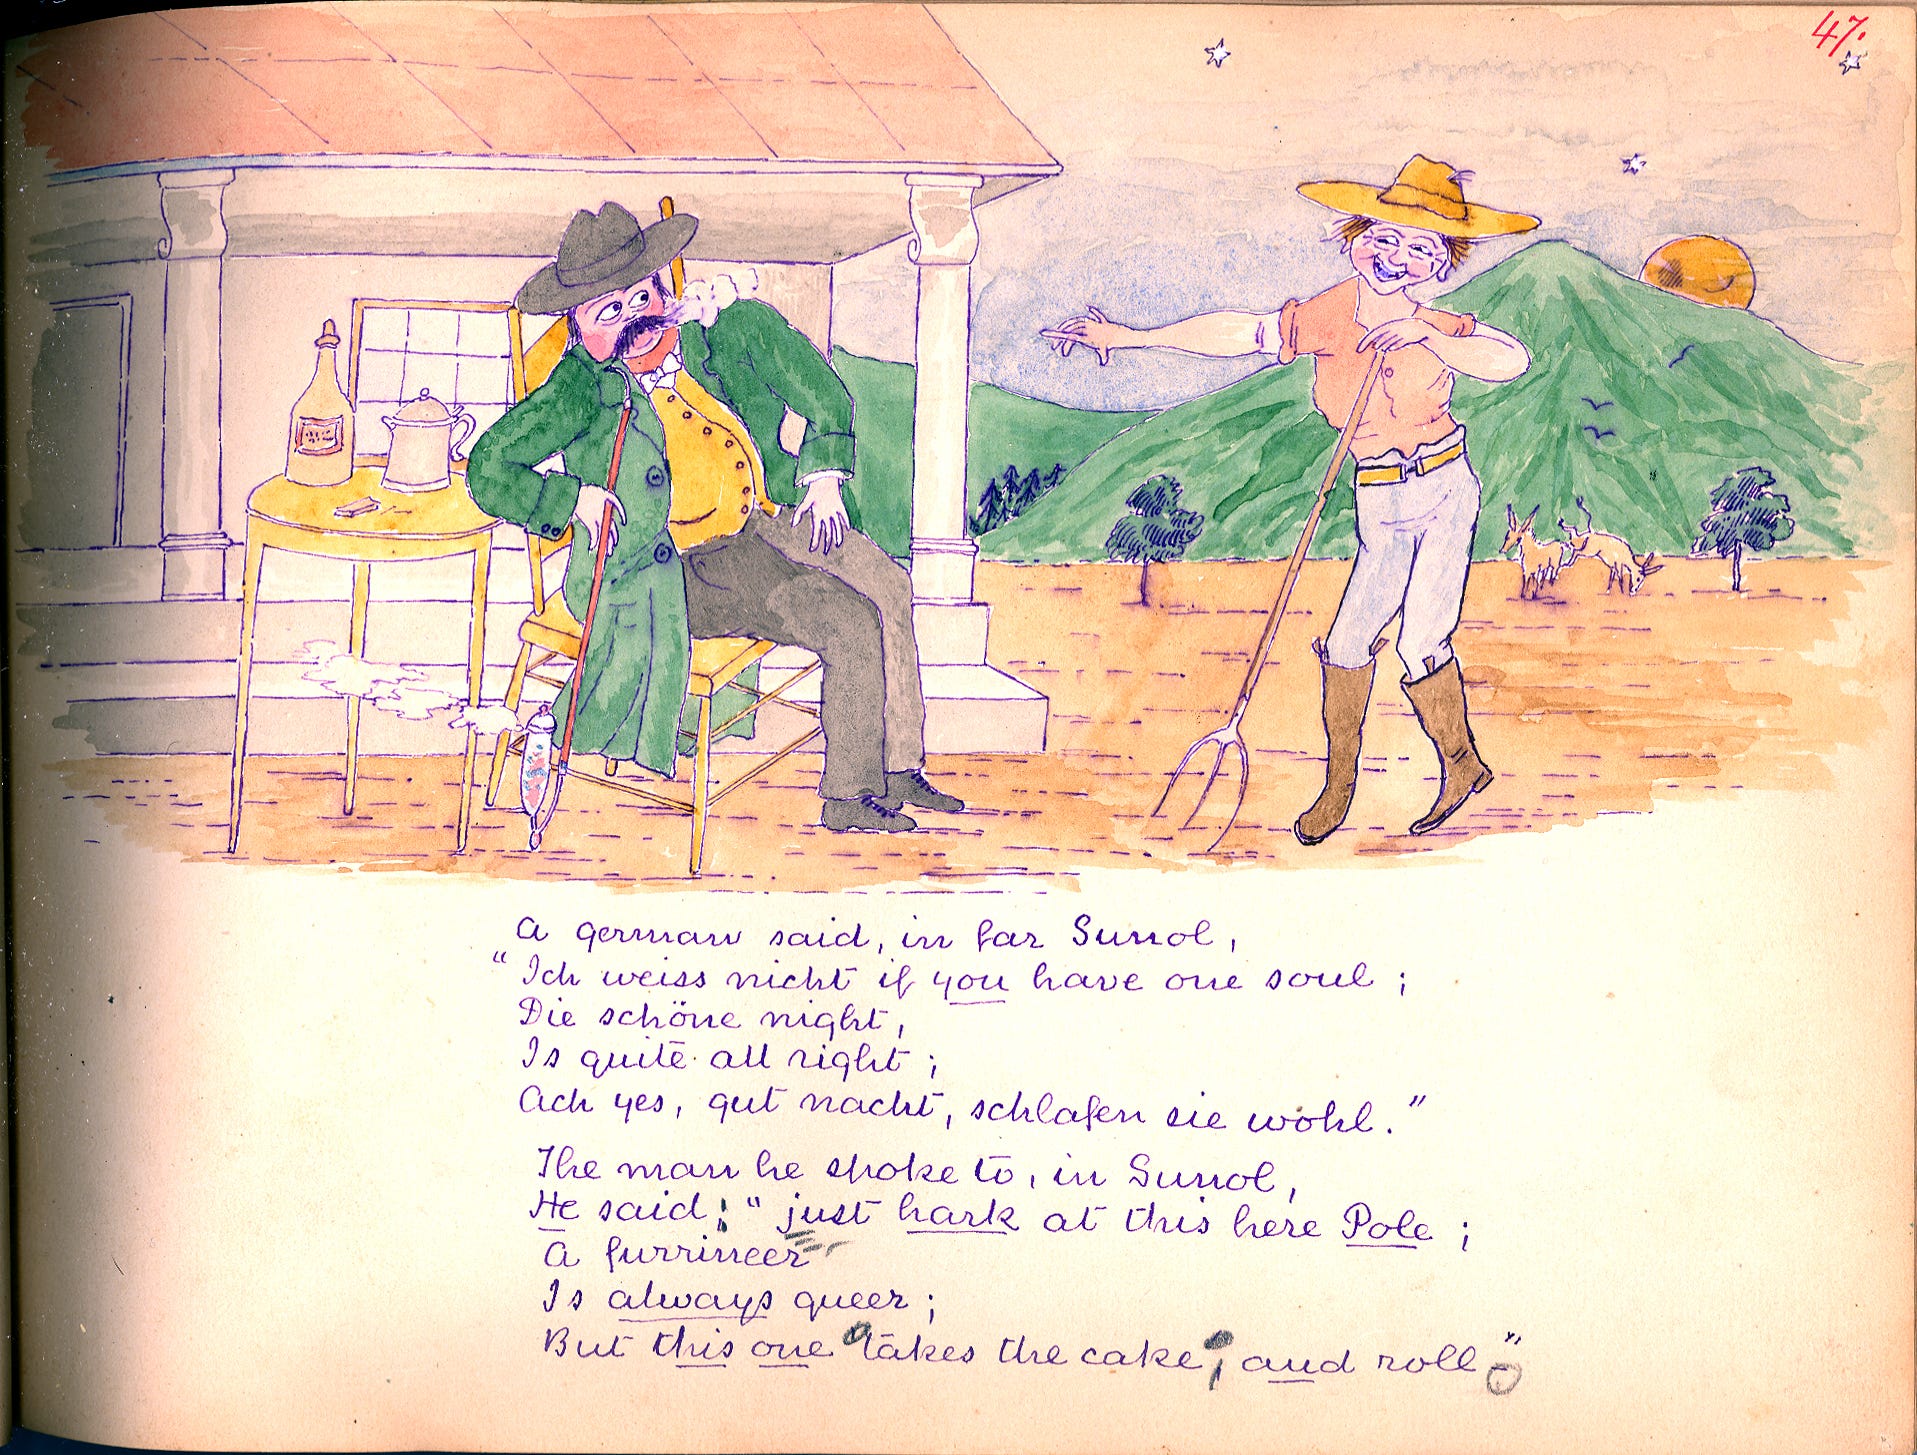 47.
A german said, in far Sunol,
"Ich weiss nicht if you have one soul;
Die schöne night,
Is quite all right;
Ach yes, gut nacht, schlafen sie wohl."
The man he spoke to, in Sunol,
He said: "just hark at this here Pole;
A furrineer
Is always queer;
But this one takes the cake, and roll."